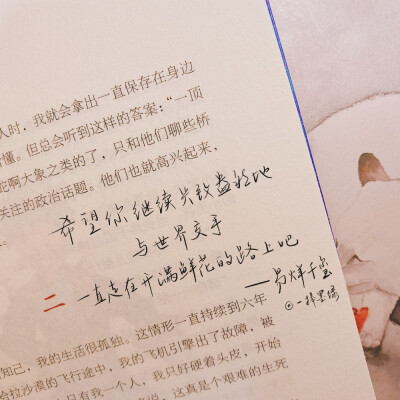 人时，我就会拿出一直保存在身边
懂。但总会听到这样的答案：“一顶
啊大象之类的了，只和他们聊些桥
关注的政治话题。他们也就高兴起来，
希望你继续兴致盎然地
与世界交手
二 一直走在开满鲜花的路上吧
——易烊千玺
知己，我的生活很孤独。这情形一直持续到六年
哈拉沙漠的飞行途中，我的飞机引擎出了故障，被
只有我一个人，我只好硬着头皮，开始
来说，这真是个艰难的生死